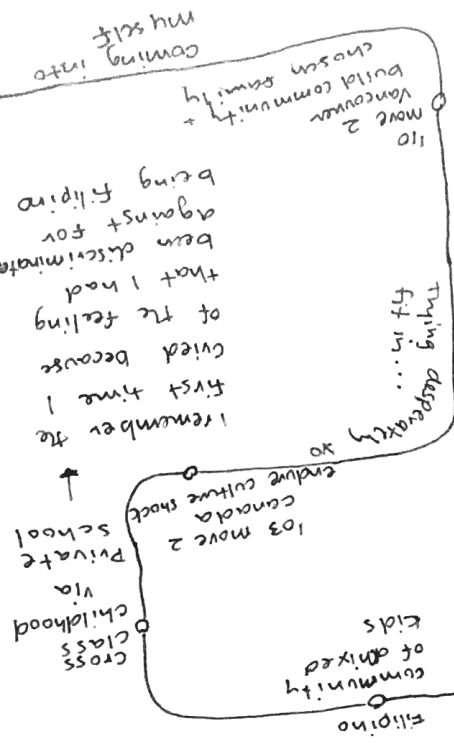 Filipino
community
of mixed
kids
cross
class
childhood
via
Private
school
'03 move 2
canada
endure culture shock
Trying desperately to
fit in...
I remember the
first time I
cried because
of the feeling
that I had
been discriminate
against for
being filipino
'10
move 2
Vancouver
build community +
chosen family
Coming into
my self